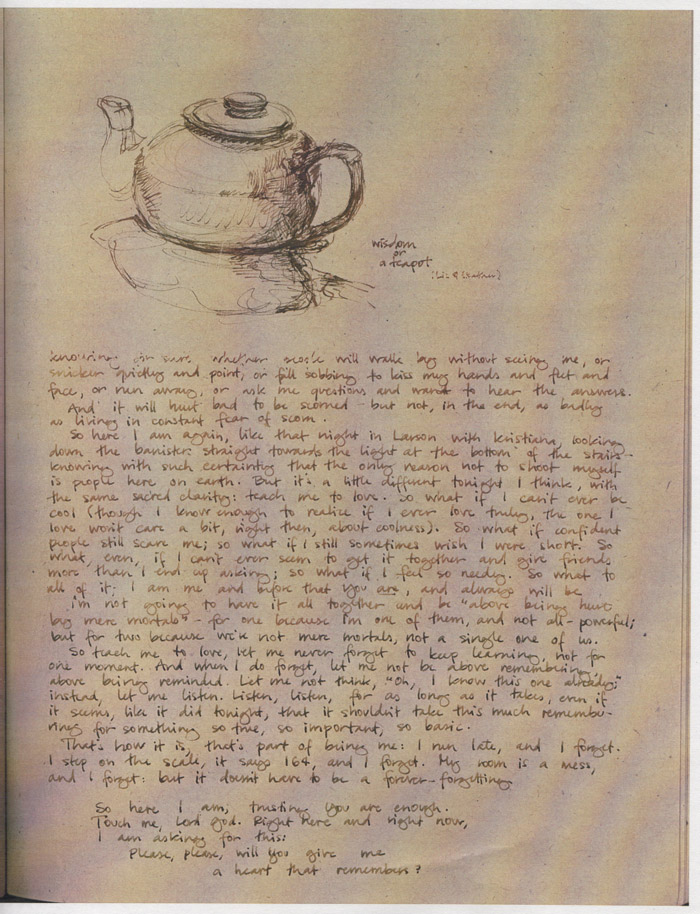 wisdom
or
a teapot
knowing for sure whether people will walk by without seeing me, or
snicker quietly and point, or fall sobbing to kiss my hands and feet and
face, or run away, or ask me questions and want to hear the answers.
And it will hurt bad to be scorned - but not, in the end, as badly
as living in constant fear of scorn.
So here I am again, like that night in Larson with Kristiana, looking
down the banister straight towards the light at the bottom of the stairs -
knowing with such certainty that the only reason not to shoot myself
is people here on earth. But it's a little different tonight I think, with
the same sacred clarity: teach me to love. So what if I can't ever be
cool (though I know enough to realize if I ever love truly, the one I
love won't care a bit, right then, about coolness). So what if confident
people still scare me; so what if I still sometimes wish I were short. So
what, even, if I can't ever seem to get it together and give friends
more than I end up asking; so what if I feel so needy. So what to
all of it; I am me and before that You are, and always will be.
I'm not going to have it all together and be "above being hurt
by mere mortals" - for one because I'm one of them, and not all-powerful;
but for two because we're not mere mortals, not a single one of us.
So teach me to love, let me never forget to keep learning, not for
one moment. And when I do forget, let me not be above remembering,
above being reminded. Let me not think, "Oh, I know this one already;"
instead, let me listen. Listen, listen, for as long as it takes, even if
it seems, like it did tonight, that it shouldn't take this much remembe-
ring for something so true, so important, so basic.
That's how it is, that's part of being me: I run late, and I forget.
I step on the scale, it says 164, and I forget. My room is a mess,
and I forget: but it doesn't have to be a forever-forgetting.
So here I am, trusting You are enough.
Touch me, Lord God. Right here and right now,
I am asking for this:
Please, please, will you give me
a heart that remembers?